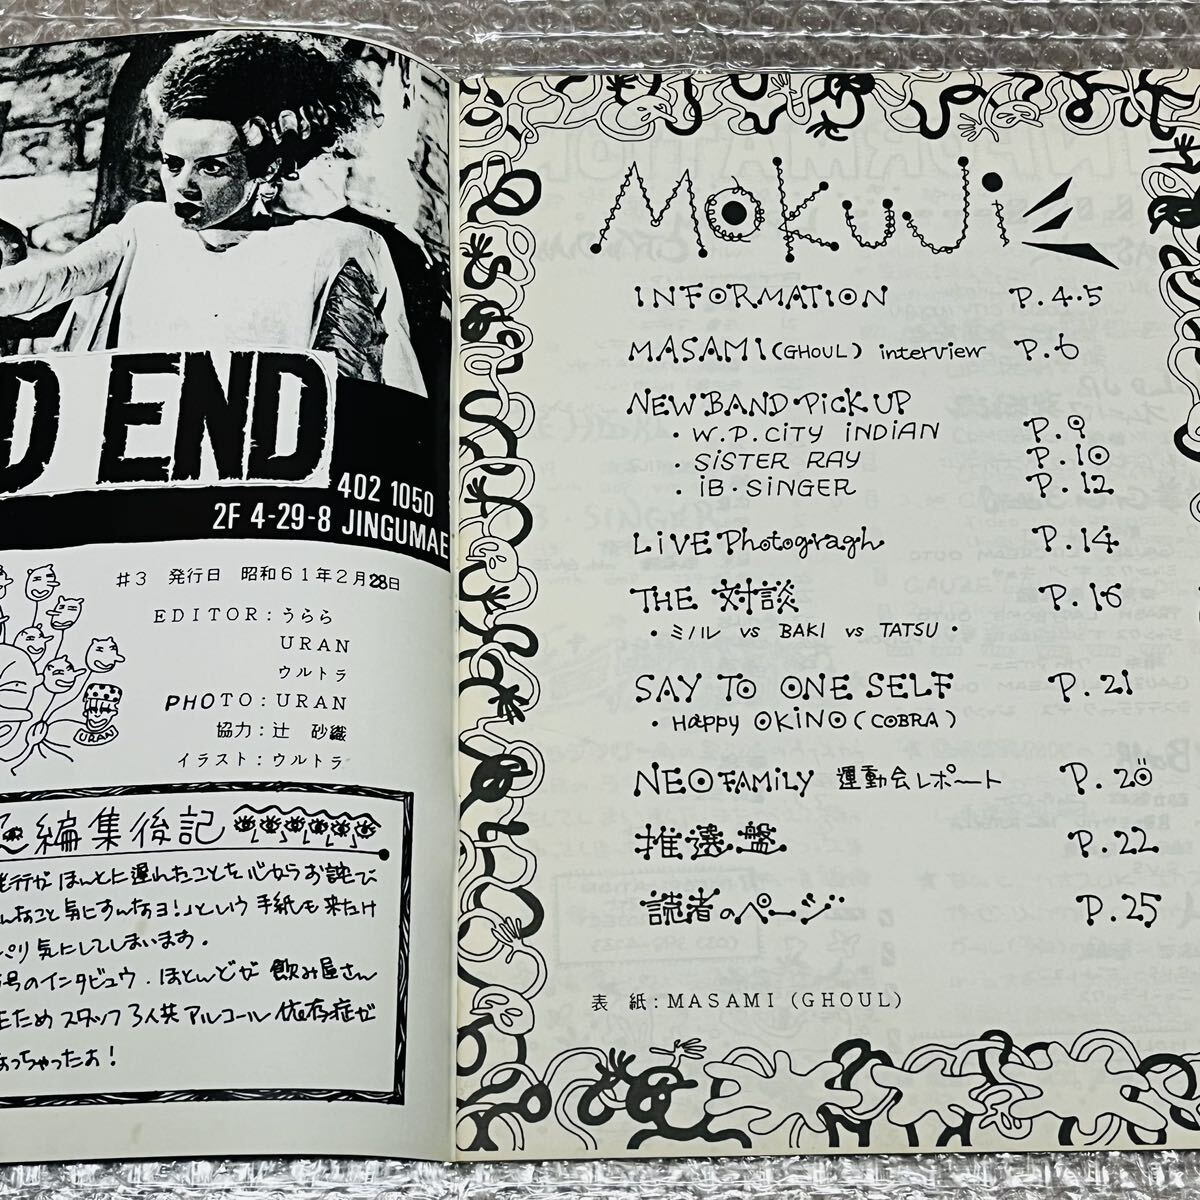 D END
402 1050
2F 4-29-8 JINGUMAE
#3 発行日 昭和61年2月28日
EDITOR:うらら
URAN
ウルトラ
PHOTO:URAN
協力:辻 砂織
イラスト:ウルトラ
URAN
編集後記
発行がほんとに遅れたことを心からお詫び
んなこと気にすんなヨ!」という手紙も来たけ
ぱり気にしてしまいます。
号のインタビュウ.ほとんどが飲み屋さん
ため スタッフ3人共アルコール依存症が
なっちゃったぉ!
MOKUJi
INFORMATION P.4・5
MASAMI(GHOUL) interview P.6
NEW BAND PiCK UP
・W.P.CiTY iNDiAN P.9
・SiSTER RAY P.10
・iB・SiNGER P.12
LiVE Photogragh P.14
THE 対談 P.16
・ミノル vs BAKI vs TATSU・
SAY TO ONE SELF P.21
・Happy OKiNO(COBRA)
NEO FAMiLY 運動会レポート P.20
推選盤 P.22
読者のページ P.25
表 紙:MASAMI(GHOUL)